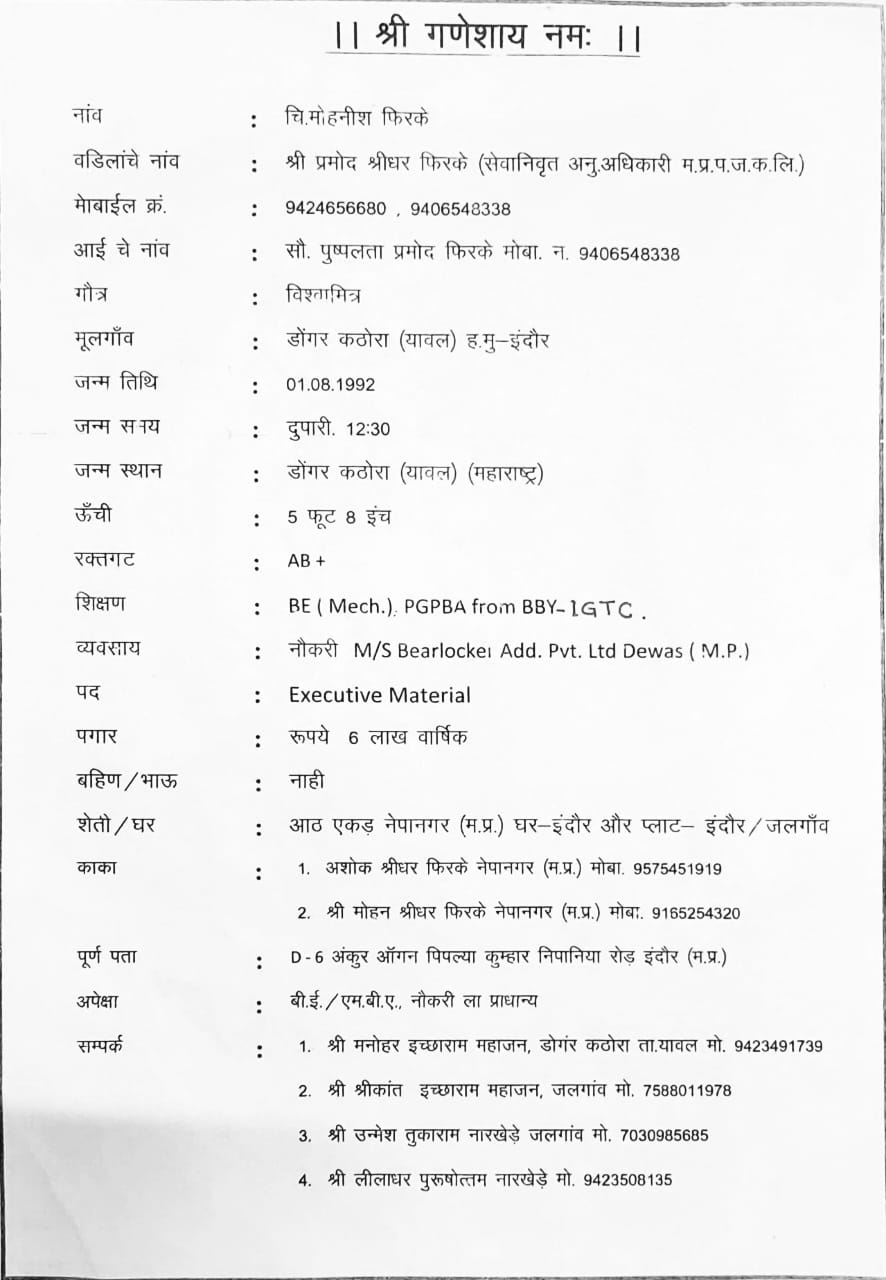 ।। श्री गणेशाय नमः ।।
नांव : चि.मोहनीश फिरके
वडिलांचे नांव : श्री प्रमोद श्रीधर फिरके (सेवानिवृत अनु.अधिकारी म.प्र.प.ज.क.लि.)
मेाबाईल क्रं. : 9424656680 , 9406548338
आई चे नांव : सौ. पुष्पलता प्रमोद फिरके मोबा. न. 9406548338
गौत्र : विश्वामित्र
मूलगाँव : डोंगर कठोरा (यावल) ह.मु–इंदौर
जन्म तिथि : 01.08.1992
जन्म समय : दुपारी. 12:30
जन्म स्थान : डोंगर कठोरा (यावल) (महाराष्ट्र)
ऊँची : 5 फूट 8 इंच
रक्तगट : AB +
शिक्षण : BE ( Mech.). PGPBA from BBY-IGTC .
व्यवसाय : नौकरी M/S Bearlocker Add. Pvt. Ltd Dewas ( M.P.)
पद : Executive Material
पगार : रूपये 6 लाख वार्षिक
बहिण/भाऊ : नाही
शेती/घर : आठ एकड़ नेपानगर (म.प्र.) घर–इंदौर और प्लाट– इंदौर/जलगाँव
काका : 1. अशोक श्रीधर फिरके नेपानगर (म.प्र.) मोबा. 9575451919
2. श्री मोहन श्रीधर फिरके नेपानगर (म.प्र.) मोबा. 9165254320
पूर्ण पता : D-6 अंकुर ऑगन पिपल्या कुम्हार निपानिया रोड़ इंदौर (म.प्र.)
अपेक्षा : बी.ई./एम.बी.ए., नौकरी ला प्राधान्य
सम्पर्क : 1. श्री मनोहर इच्छाराम महाजन, डोगंर कठोरा ता.यावल मो. 9423491739
2. श्री श्रीकांत इच्छाराम महाजन, जलगांव मो. 7588011978
3. श्री उन्मेश तुकाराम नारखेड़े जलगांव मो. 7030985685
4. श्री लीलाधर पुरूषोत्तम नारखेड़े मो. 9423508135